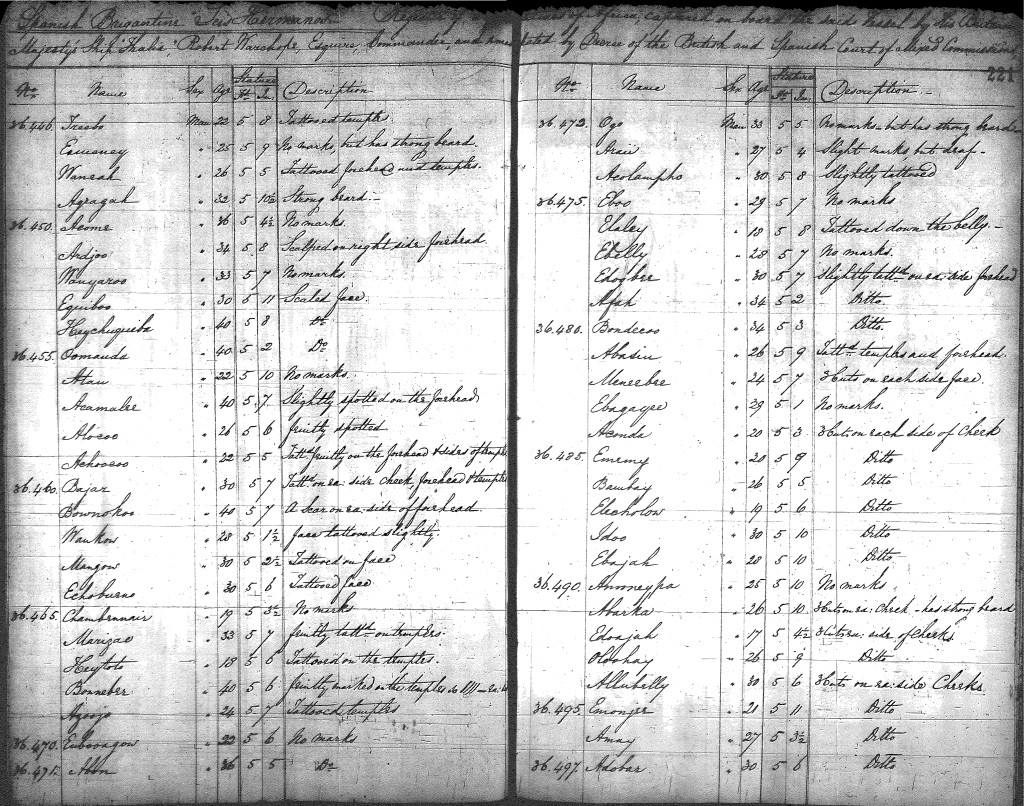 Spanish Brigantine Tres Hermanos. Register of
Majesty's Ship "Thalia" Robert Wauchope, Esquire, Commander, and
No. Name Sex Age Stature Ft. In. Description
36.446. Man 22 5 8 Tattooed temples
" 25 5 9 No marks, but has strong beard.
Waneah " 26 5 5 Tattooed forehead and temples.
Agragah " 32 5 10½ Strong beard.-
36.450. Acome " 36 5 4½ No marks.
Ardjoo " 34 5 8 Scalped on right side forehead
Wanyaroo " 33 5 7 No marks.
Equiboo " 30 5 11 Scaled face.
Heychuquiba " 40 5 8 Do
36.455. Oomanda " 40 5 2 Do
Atau " 22 5 10 No marks.
Acamalee " 40 5 7. Slightly spotted on the forehead
Alocoo " 26 5 6 spotted
Achoocoo " 22 5 5 on the forehead & sides of temples
36.460. Bajar " 30 5 7 Tattd on ea: side cheek, forehead & temples
Bownokoo " 40 5 7 A Scar on ea: side of forehead.
Waukow " 28 5 1½ face tattooed slightly.
Mangow " 30 5 2½ Tattooed on face
Echoburno " 30 5 6 Tattooed face
36.465. Chambrannair " 19 5 3½ No marks
Marigae " 33 5 7 tattd on temples.
Heytoto " 18 5 6 Tattooed on the temples.
Bonneber " 40 5 6 marked on the temples so
" 24 5 7 Tattooed temples
36.470. Euboovagow " 22 5 6 No marks
36.471. Abon " 36 5 5 Do
of Africa, captured on board the said Vessel by His Britannic
by Decree of the British and Spanish Court of Mixed Commission
221
No. Name Sex Age Stature Ft. In. Description.-
36.472. Ogo Man 33 5 5 No marks - but has strong beard
" 27 5 4 Slight marks, but deaf -
Acolampho " 30 5 8 Slightly tattooed
36.475. Eboo " 29 5 7 No marks
Elaley " 18 5 8 Tattooed down the belly.-
Ebelly " 28 5 7 No marks.
Edogbee " 30 5 7 Slightly tattd on ea: side forehead
Afah " 34 5 2 Ditto.
36.480. Bondecoo " 34 5 3 Ditto.
Abasin " 26 5 9 Tattd temples and forehead.
Meneebee " 24 5 7 3 Cuts on each side face.
Ebagayee " 29 5 1 No marks.
Aconda " 20 5 3 3 Cuts on each side of Cheek
36.485. Ememy " 20 5 9 Ditto
Bambay " 26 5 5 Ditto
Elecholow " 19 5 6 Ditto
Idoo " 30 5 10 Ditto
Ebajah " 28 5 10 Ditto
36.490. Anoneypa " 25 5 10 No marks
Abarka " 26 5 10 3 Cuts on ea: Cheek - has strong beard
Edoajah " 17 5 4½ 3 Cuts ea: side of Cheeks
Olochay " 26 5 9 Ditto
Allubelly " 30 5 6 3 Cuts on ea: side Cheeks.
36.495. Emonjer " 21 5 11 Ditto
Amay " 27 5 3½ Ditto
36.497. Adobar " 30 5 6 Ditto